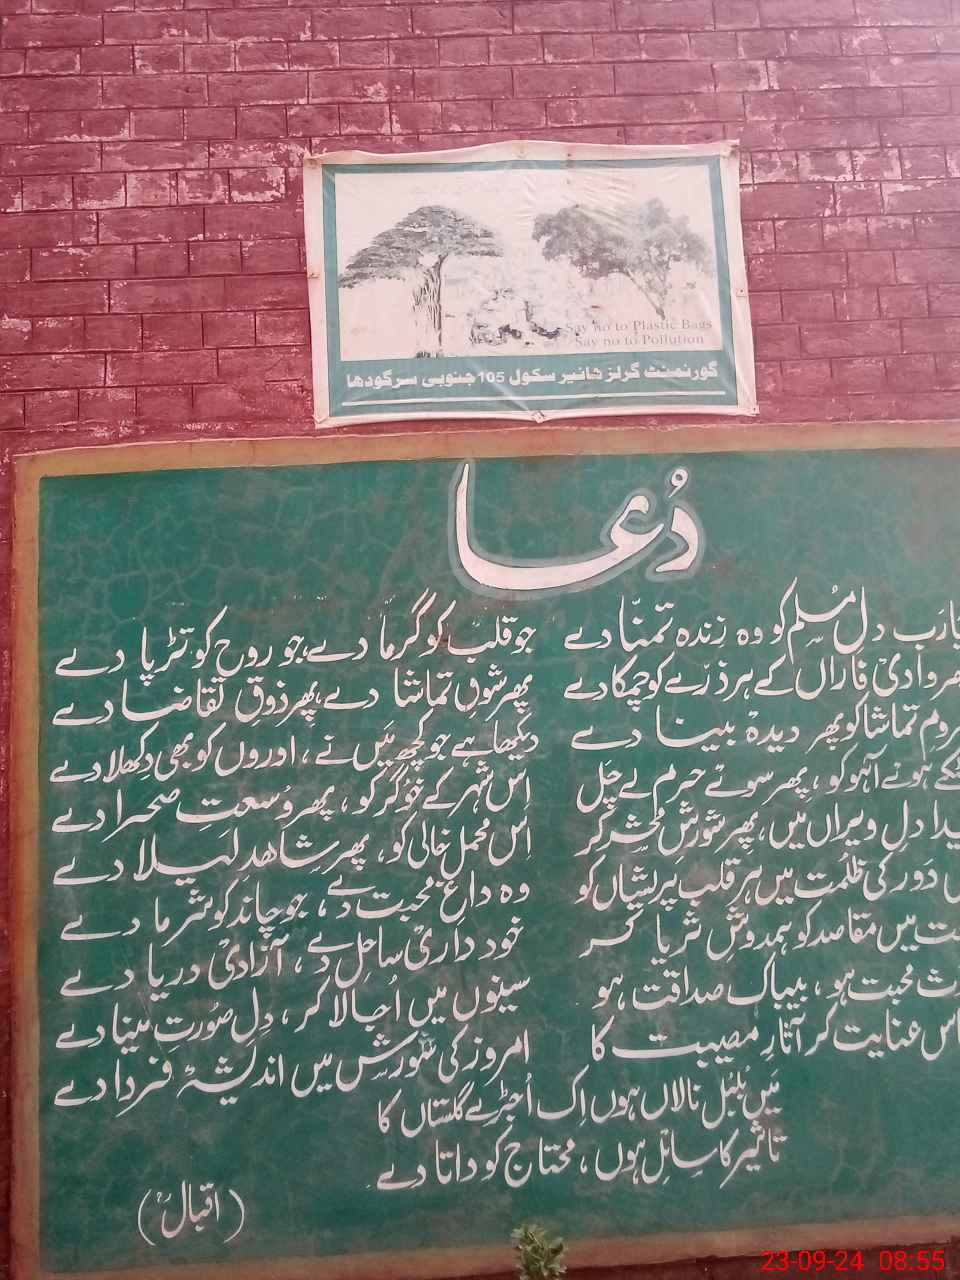 Say no to Plastic Bags
Say no to Pollution
گورنمنٹ گرلز ہائیر سکول 105 جنوبی سرگودھا
دُعا
یارَب دلِ مُسلِم کو وہ زِندہ تمنّا دے جو قلب کو گرما دے، جو روح کو تڑپا دے
پھر وادیٔ فاراں کے ہر ذرّے کو چمکا دے پھر شوقِ تماشا دے، پھر ذوقِ تقاضا دے
محرومِ تماشا کو پھر دیدۂ بینا دے دیکھا ہے جو کچھ مَیں نے، اوروں کو بھی دِکھلا دے
بھٹکے ہوئے آہو کو، پھر سوئے حرم لے چل اِس شہر کے خُوگر کو، پھر وُسعتِ صحرا دے
پیدا دلِ ویراں میں، پھر شورشِ محشر کر اِس محملِ خالی کو، پھر شاہدِ لیلا دے
دَور کی ظُلمت میں ہر قلبِ پریشاں کو وہ داغِ محبت دے، جو چاند کو شرما دے
میں مقاصد کو ہمدوشِ ثریا کر خود داریٔ ساحل دے، آزادیٔ دریا دے
محبت ہو، بیباک صداقت ہو سینوں میں اُجالا کر، دِل صُورتِ مینا دے
عنایت کر آثارِ مصیبت کا امروز کی شورِش میں اندیشۂ فردا دے
مَیں بُلبُلِ نالاں ہوں اِک اُجڑے گلستاں کا
تاثیر کا سائل ہُوں، محتاج کو داتا دے
(اقبالؒ)
23-09-24 08:55